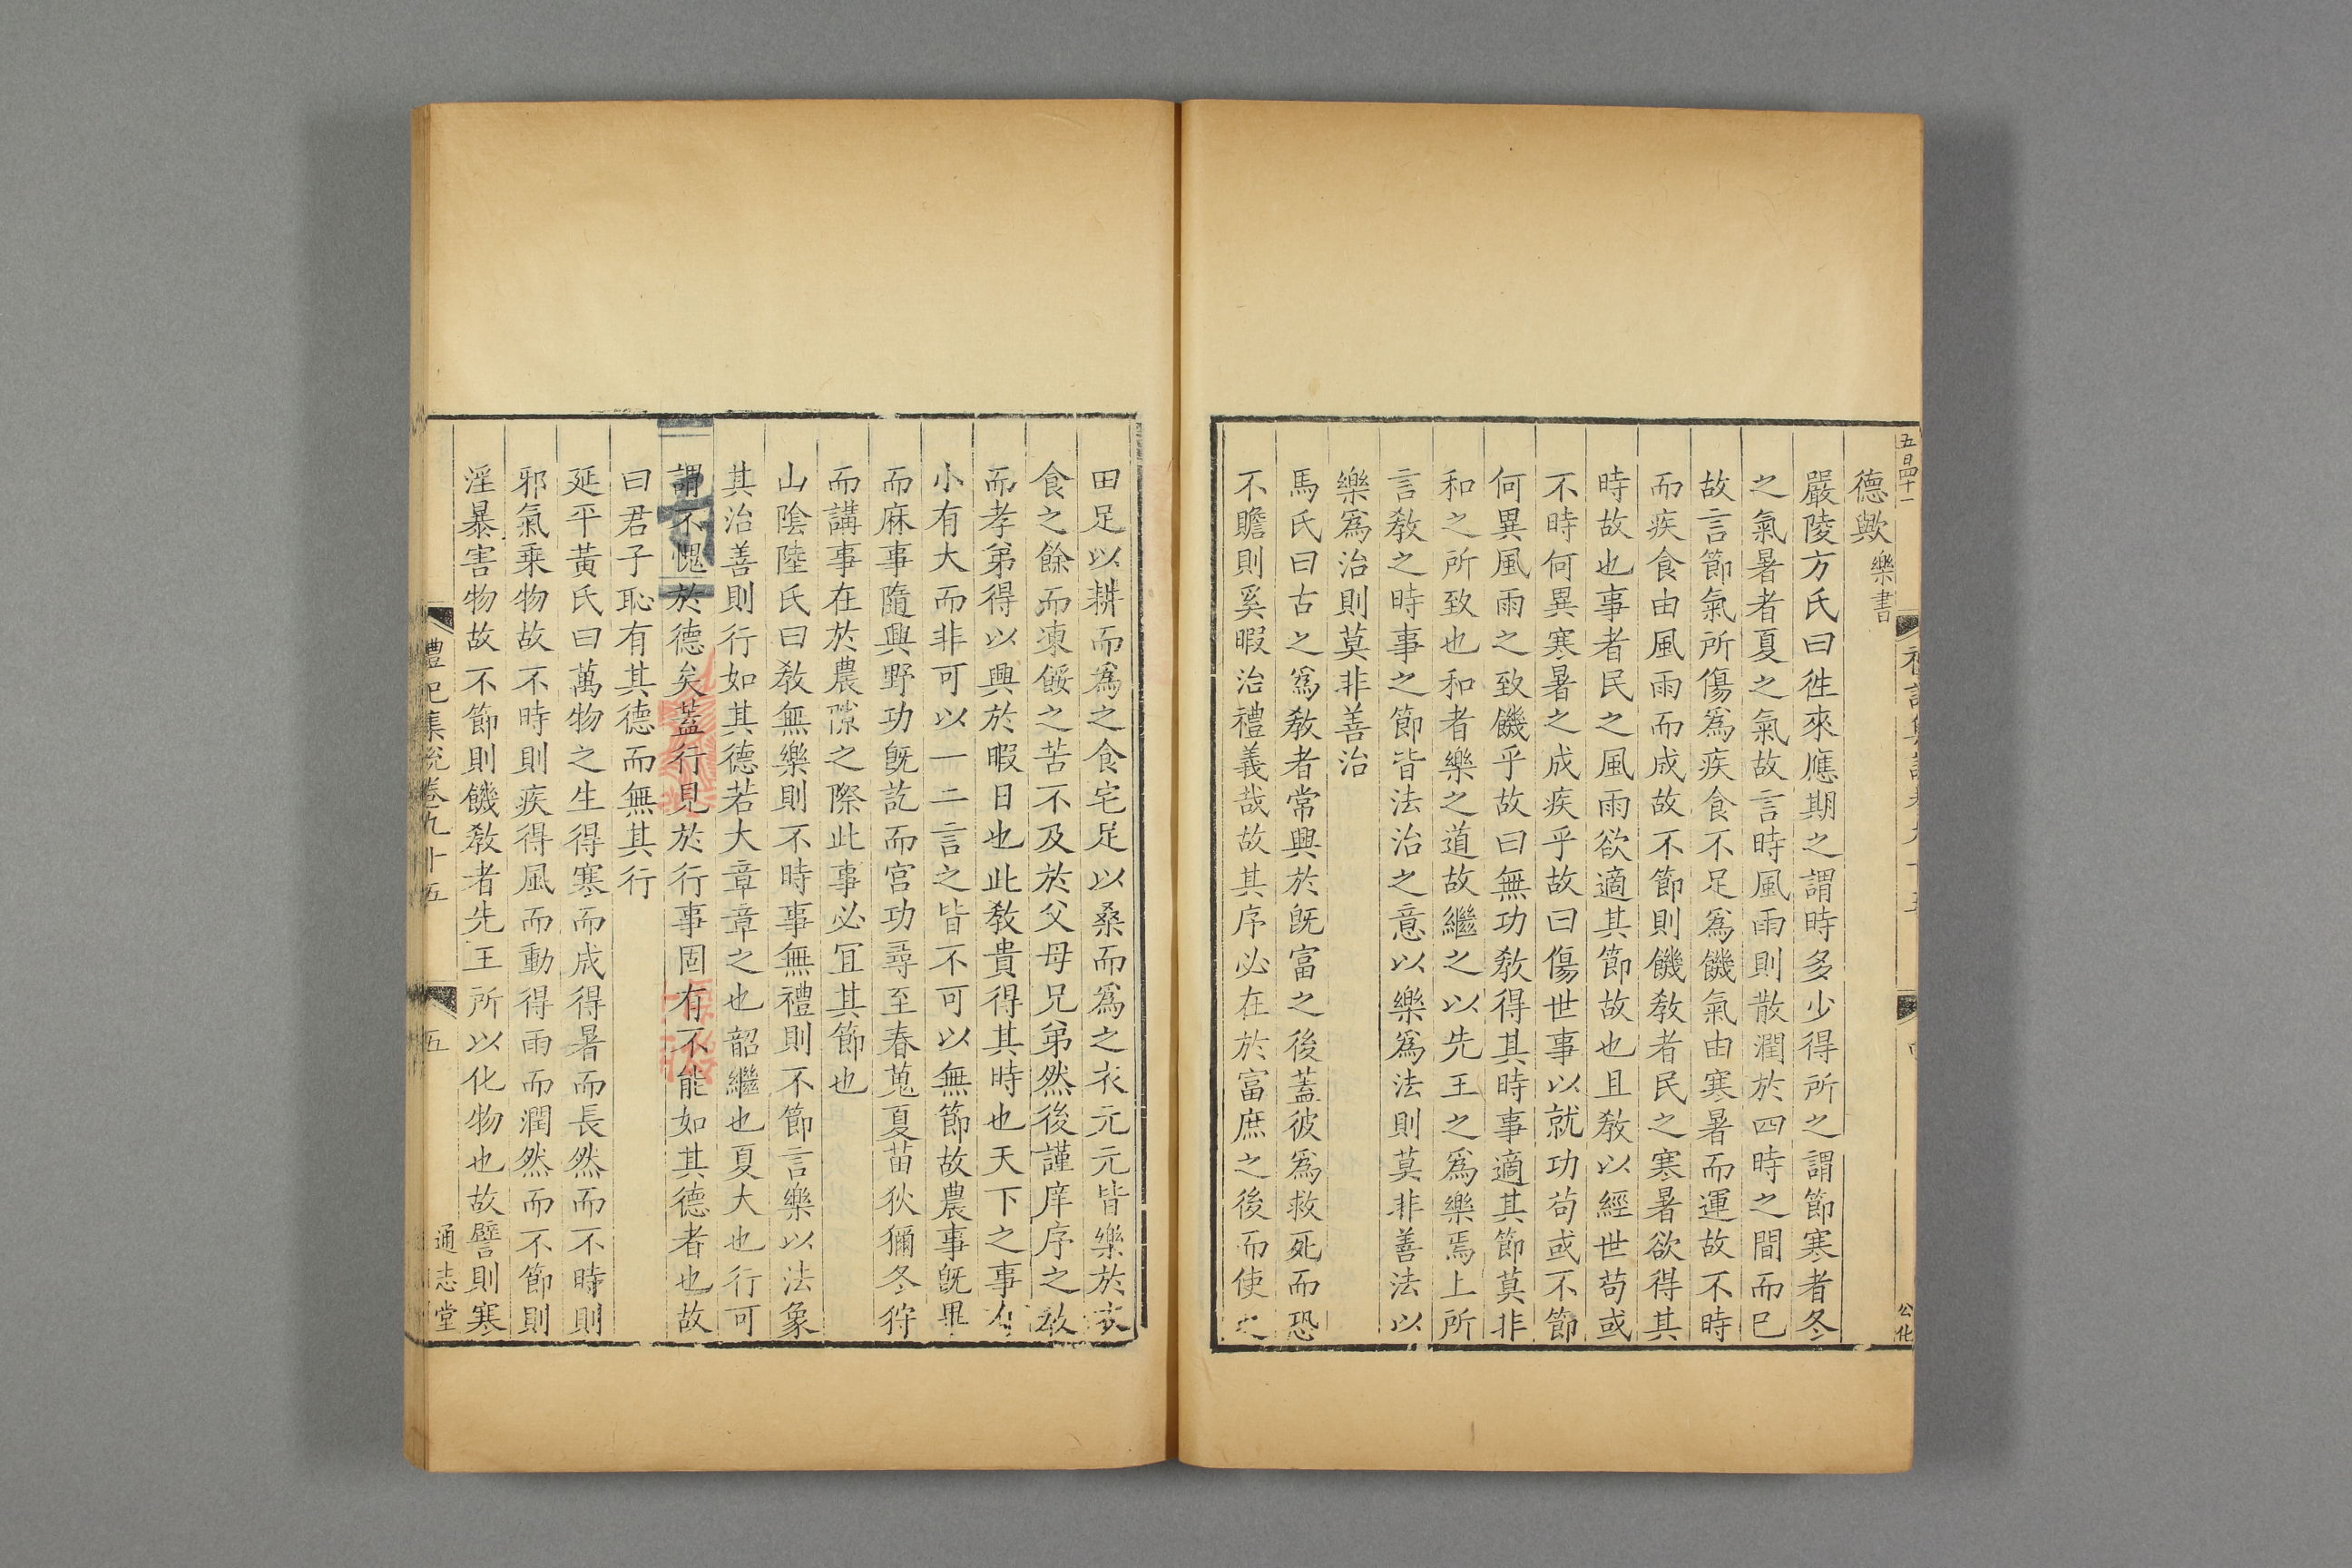 五百四十一
德歟樂書
嚴陵方氏曰徃來應期之謂時多少得所之謂節寒者冬
之氣暑者夏之氣故言時風雨則散潤於四時之間而已
故言節氣所傷爲疾食不足爲饑氣由寒暑而運故不時
而疾食由風雨而成故不節則饑敎者民之寒暑欲得其
時故也事者民之風雨欲適其節故也且敎以經世苟或
不時何異寒暑之成疾乎故曰傷世事以就功苟或不節
何異風雨之致饑乎故曰無功敎得其時事適其節莫非
和之所致也和者樂之道故繼之以先王之爲樂焉上所
言敎之時事之節皆法治之意以樂爲法則莫非善法以
樂爲治則莫非善治
馬氏曰古之爲敎者常興於旣富之後蓋彼爲救死而恐
不贍則奚暇治禮義哉故其序必在於富庶之後而使之
公化
田足以耕而爲之食宅足以桑而爲之衣元元皆樂於衣
食之餘而凍餒之苦不及於父母兄弟然後謹庠序之敎
而孝弟得以興於暇日也此敎貴得其時也天下之事有
小有大而非可以一二言之皆不可以無節故農事旣畢
而麻事隨興野功旣訖而宫功尋至春蒐夏苗秋獮冬狩
而講事在於農隙之際此事必冝其節也
山陰陸氏曰敎無樂則不時事無禮則不節言樂以法象
其治善則行如其德若大章章之也韶繼也夏大也行可
謂不愧於德矣蓋行見於行事固有不能如其德者也故
曰君子恥有其德而無其行
延平黃氏曰萬物之生得寒而成得暑而長然而不時則
邪氣乗物故不時則疾得風而動得雨而潤然而不節則
淫暴害物故不節則饑敎者先王所以化物也故譬則寒
禮記集說卷九十五 五 通志堂